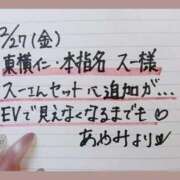 2/27(金)
東横仁・本指名 スー様
スーさんセット に追加が…
EVで見えなくなるまでも♡
あゆみより♡